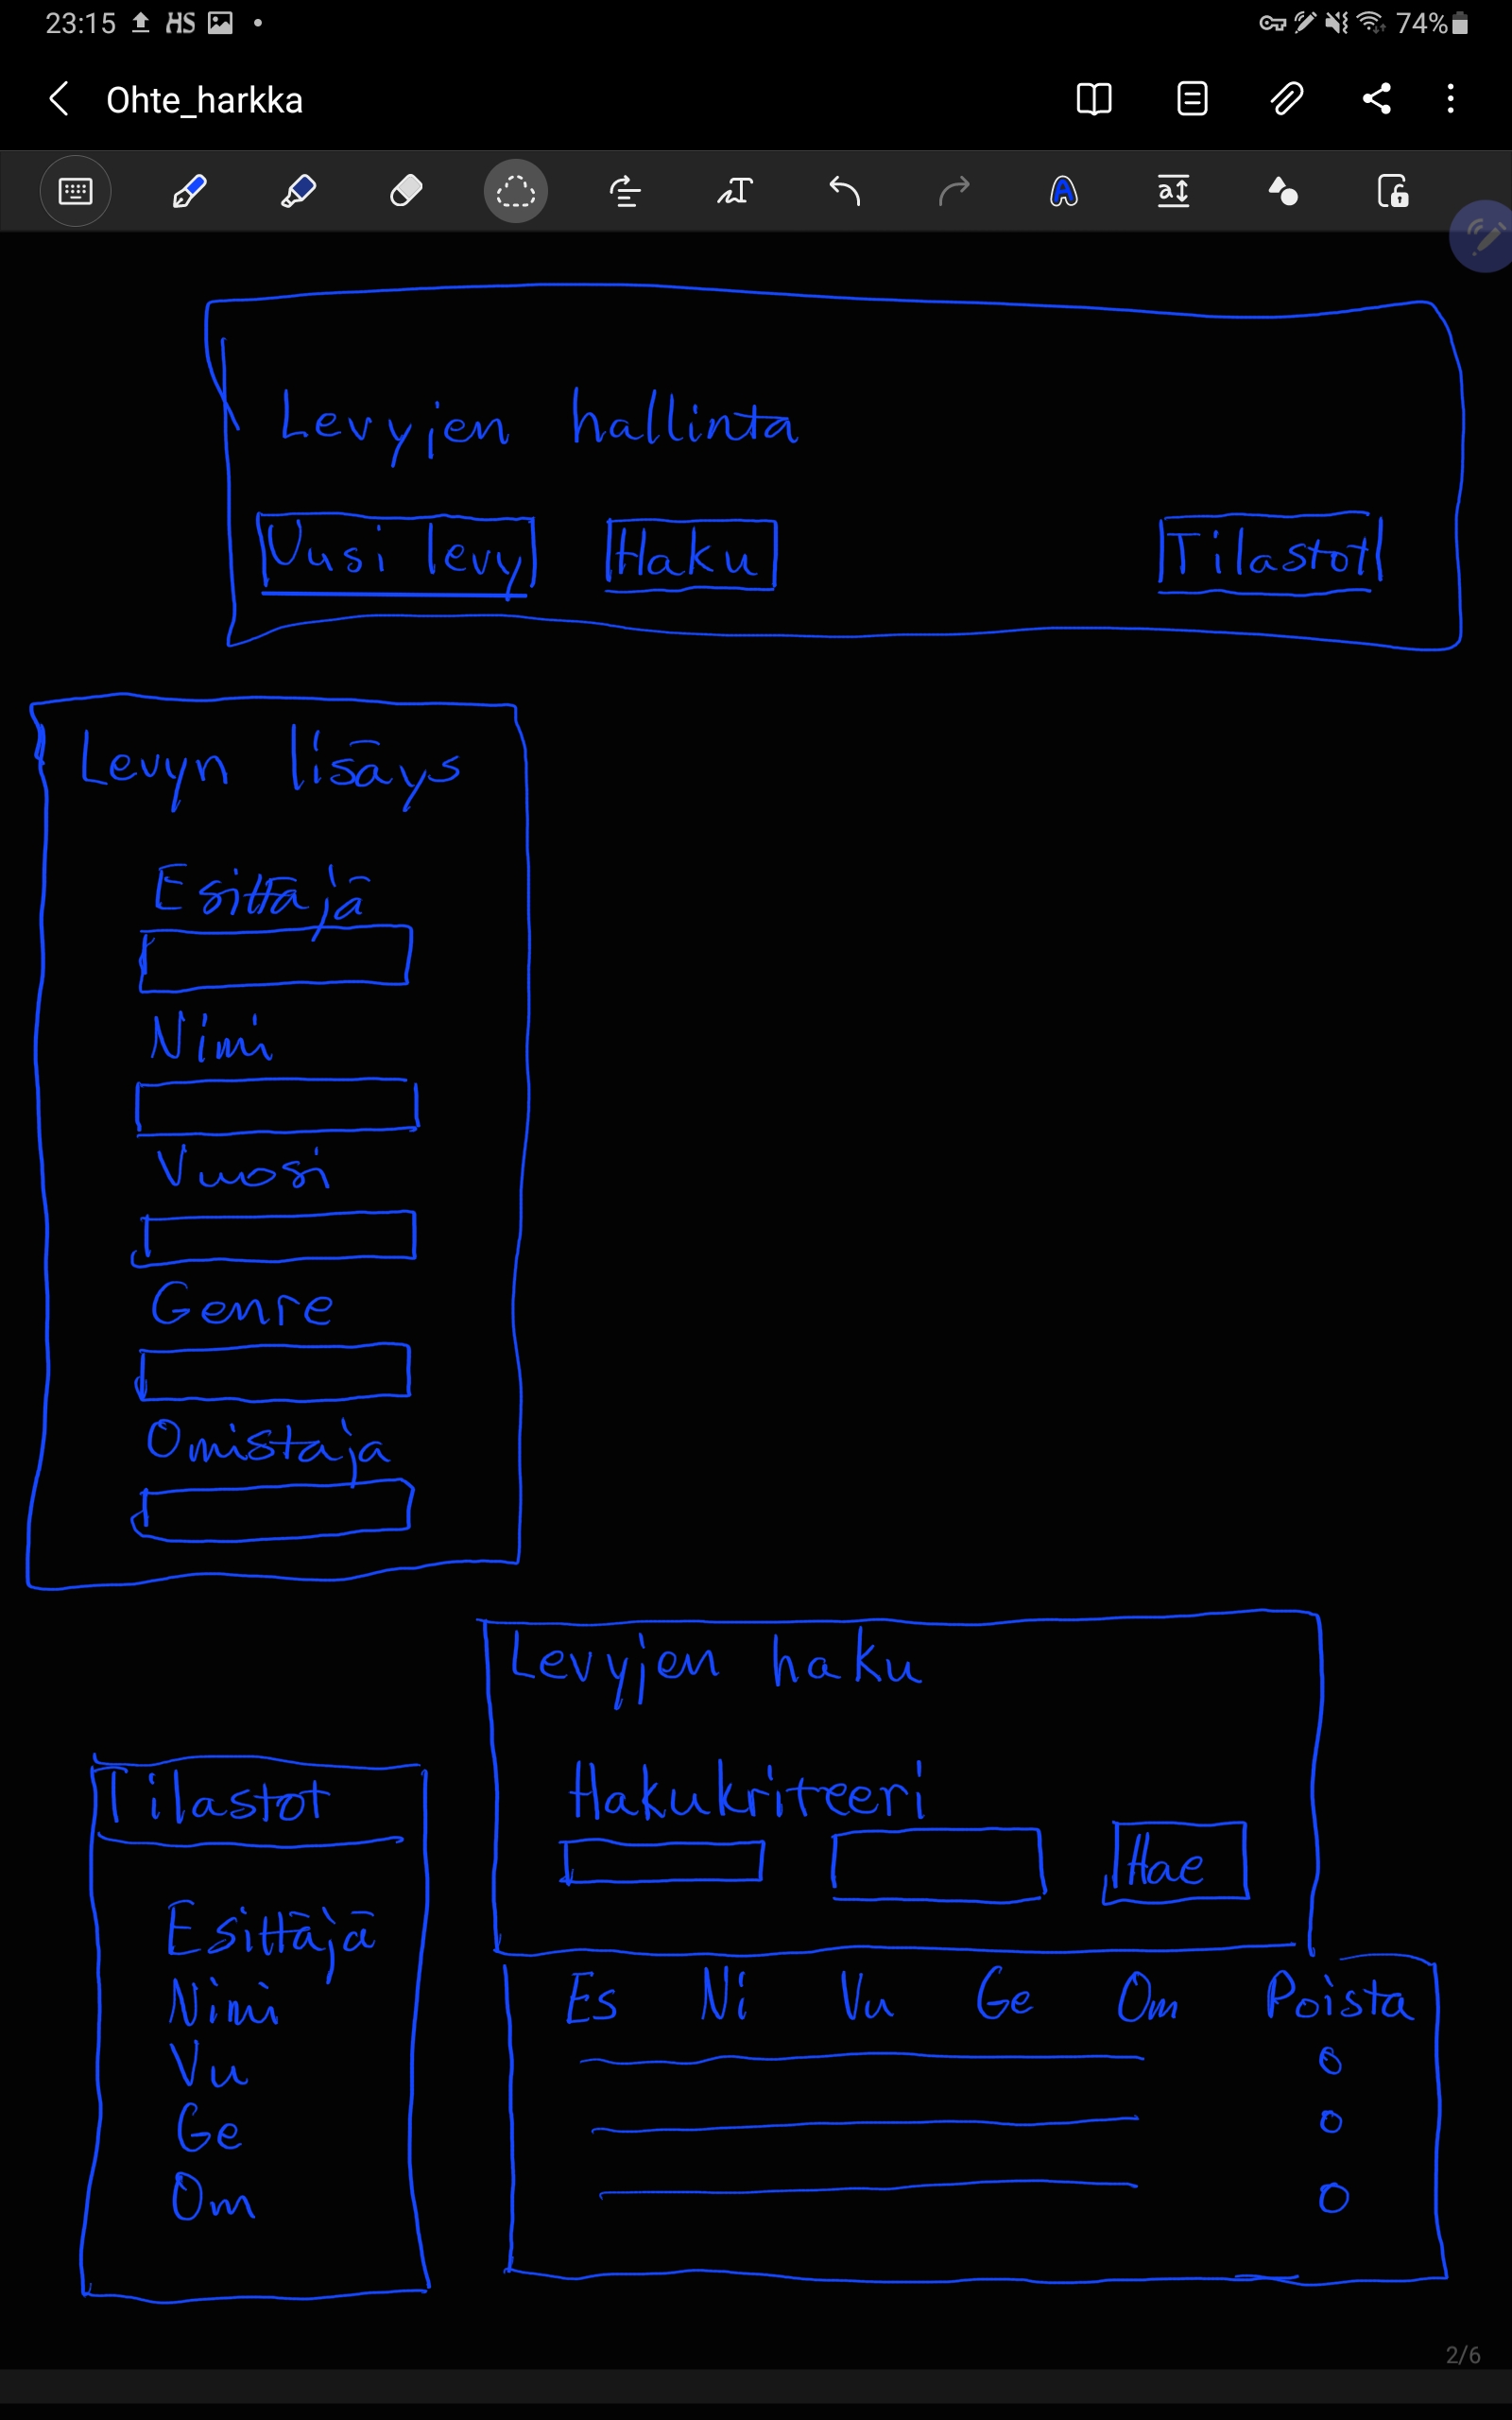 23:15 HS 74%
Ohte_harkka
Levyjen hallinta
Uusi levy Haku Tilastot
Levyn lisäys
Esittäjä
Nimi
Vuosi
Genre
Omistaja
Levyjen haku
Hakukriteeri
Hae
Es Ni Vu Ge Om Poista
Tilastot
Esittäjä
Nimi
Vu
Ge
Om
2/6